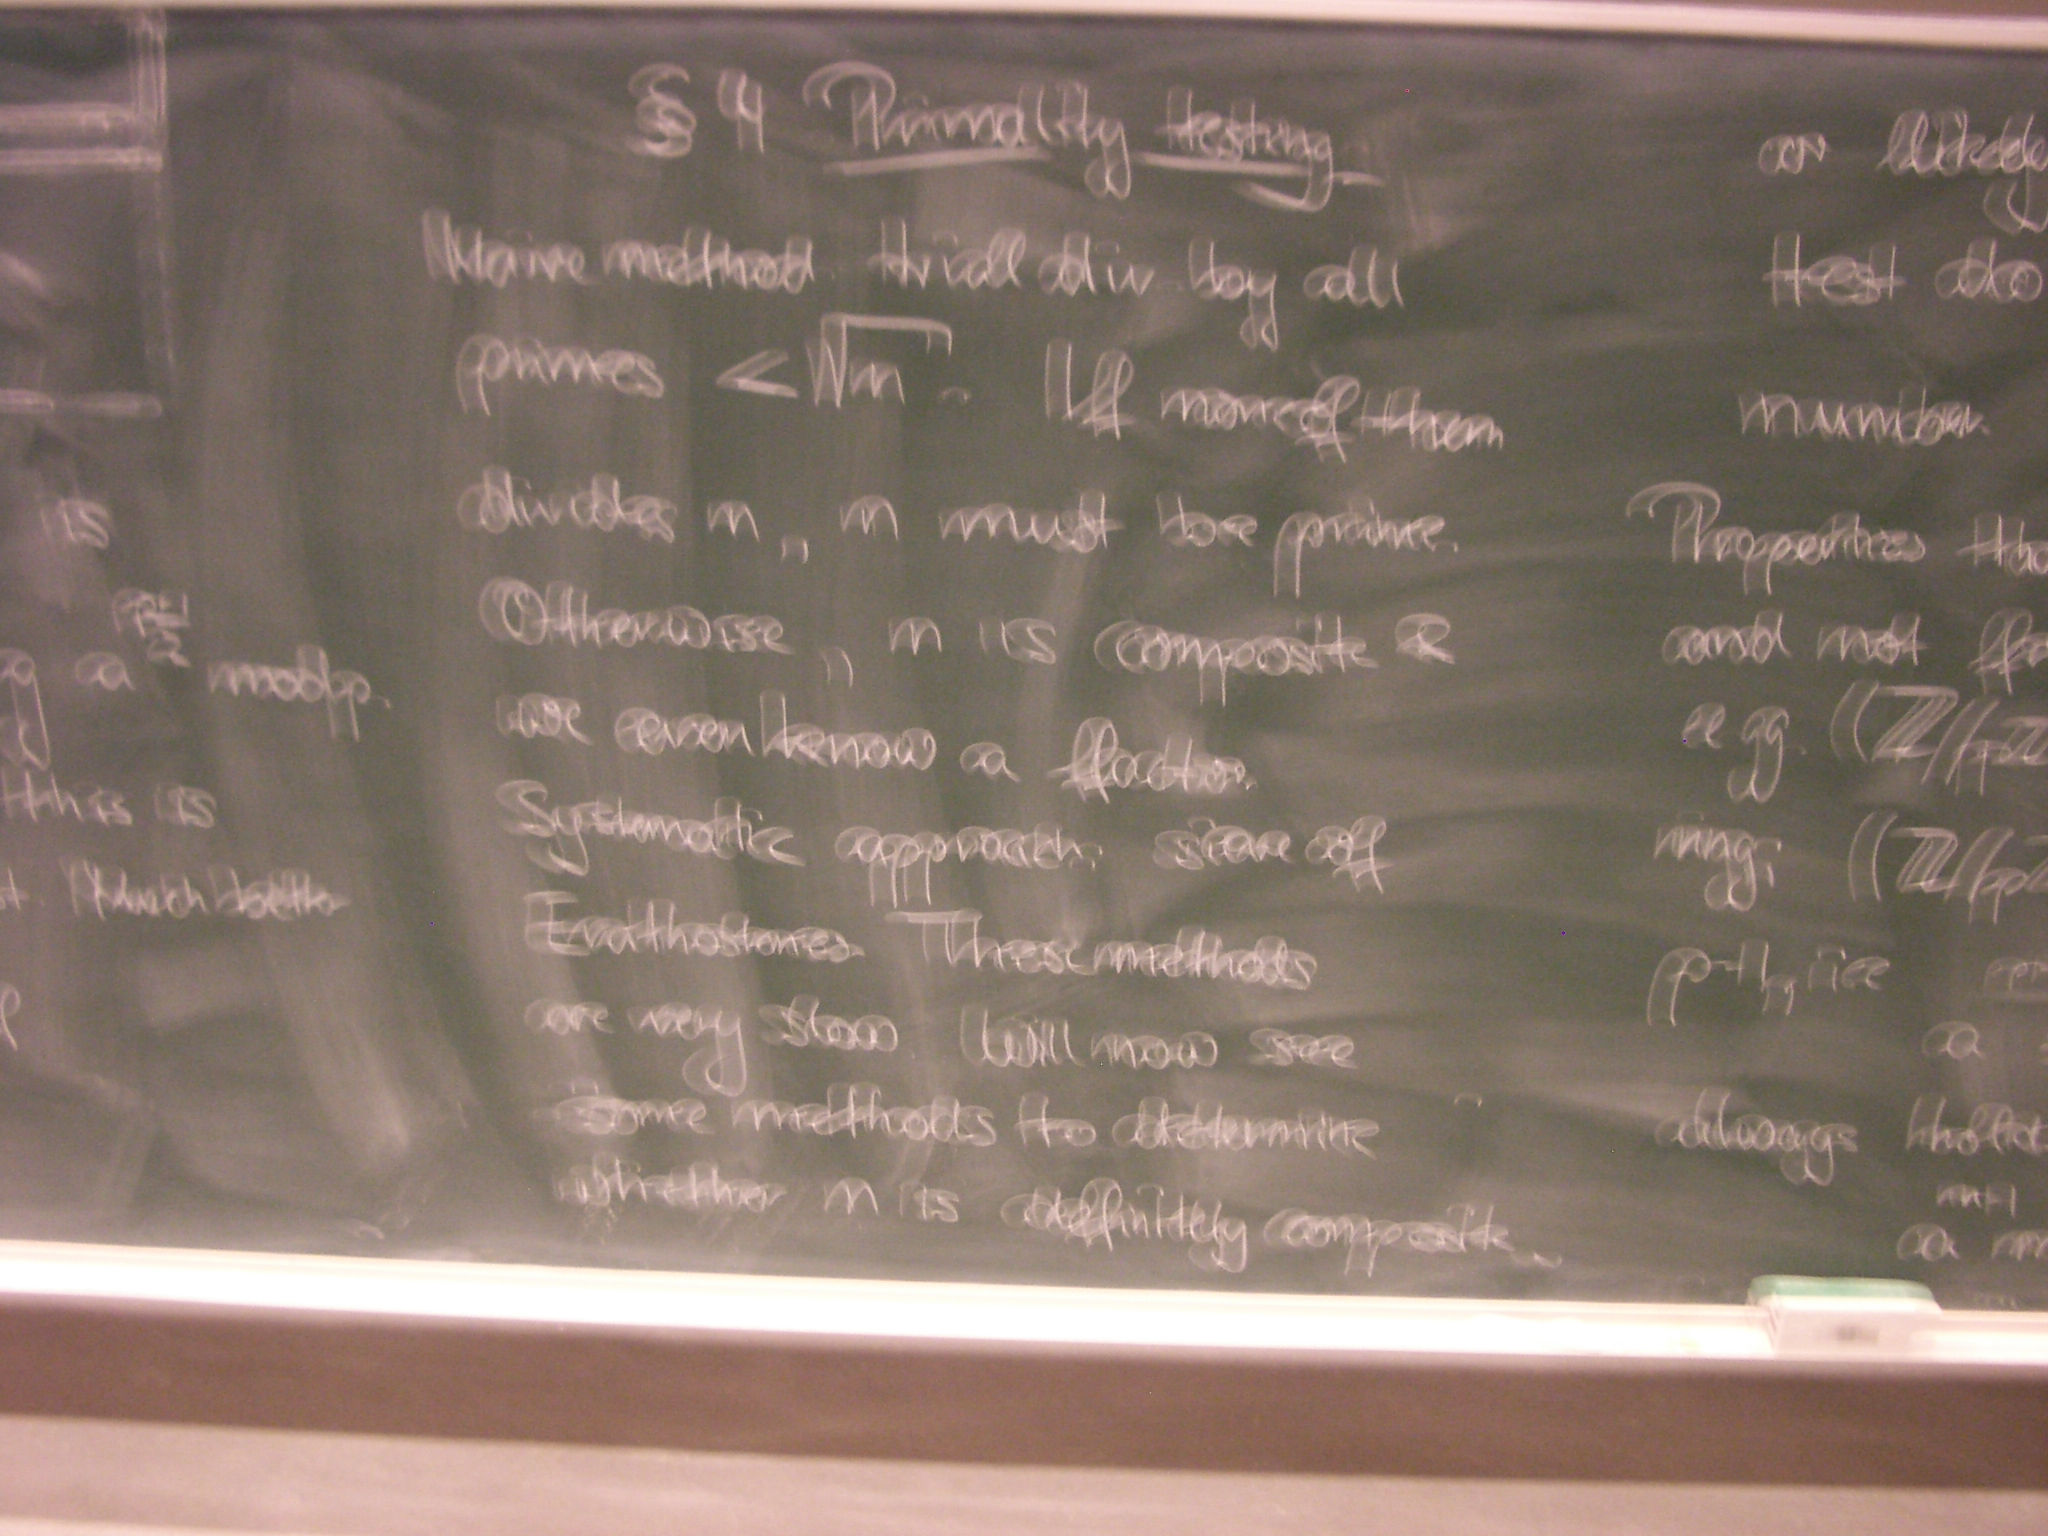 § 4 Primality testing
Naive method: trial div. by all
primes < √n. If none of them
divides n, n must be prime.
Otherwise, n is composite &
we even know a factor.
Systematic approach: sieve of
Erathostenes. These methods
are very slow. Will now see
some methods to determine
whether n is definitely composite
is
a mod p.
this is
much better
or likely
test do
number.
Properties
and not
e.g. (Z/pZ
ring; (Z/pZ
p-1, i.e.
a
always
a